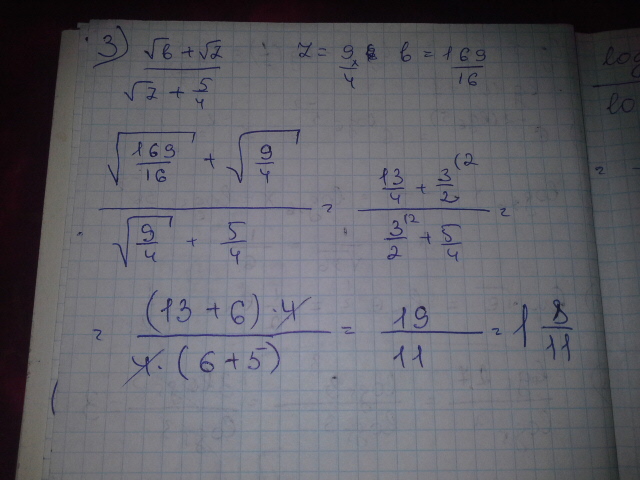 3) (√b + √z)/(√z + 5/4) ; z = 9/4 b = 169/16
(√(169/16) + √(9/4))/(√(9/4) + 5/4) = (13/4 + 3/2 (2)/(3/2 (2 + 5/4) =
= ((13 + 6) · 4)/(4 · (6 + 5)) = 19/11 = 1 8/11